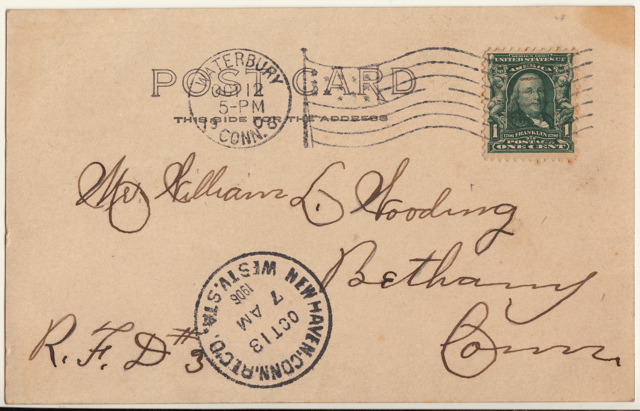 POST CARD
THIS SIDE FOR THE ADDRESS
WATERBURY
OCT 12
5-PM
19 06
CONN.
SERIES 1902
UNITED STATES OF
AMERICA
1706 FRANKLIN 1790
1 POSTAGE 1
ONE CENT
Mr William L. Wooding
Bethany
Conn.
R. F. D #3
NEW HAVEN, CONN. REC'D.
WESTV. STA.
OCT 13
7 AM
1906